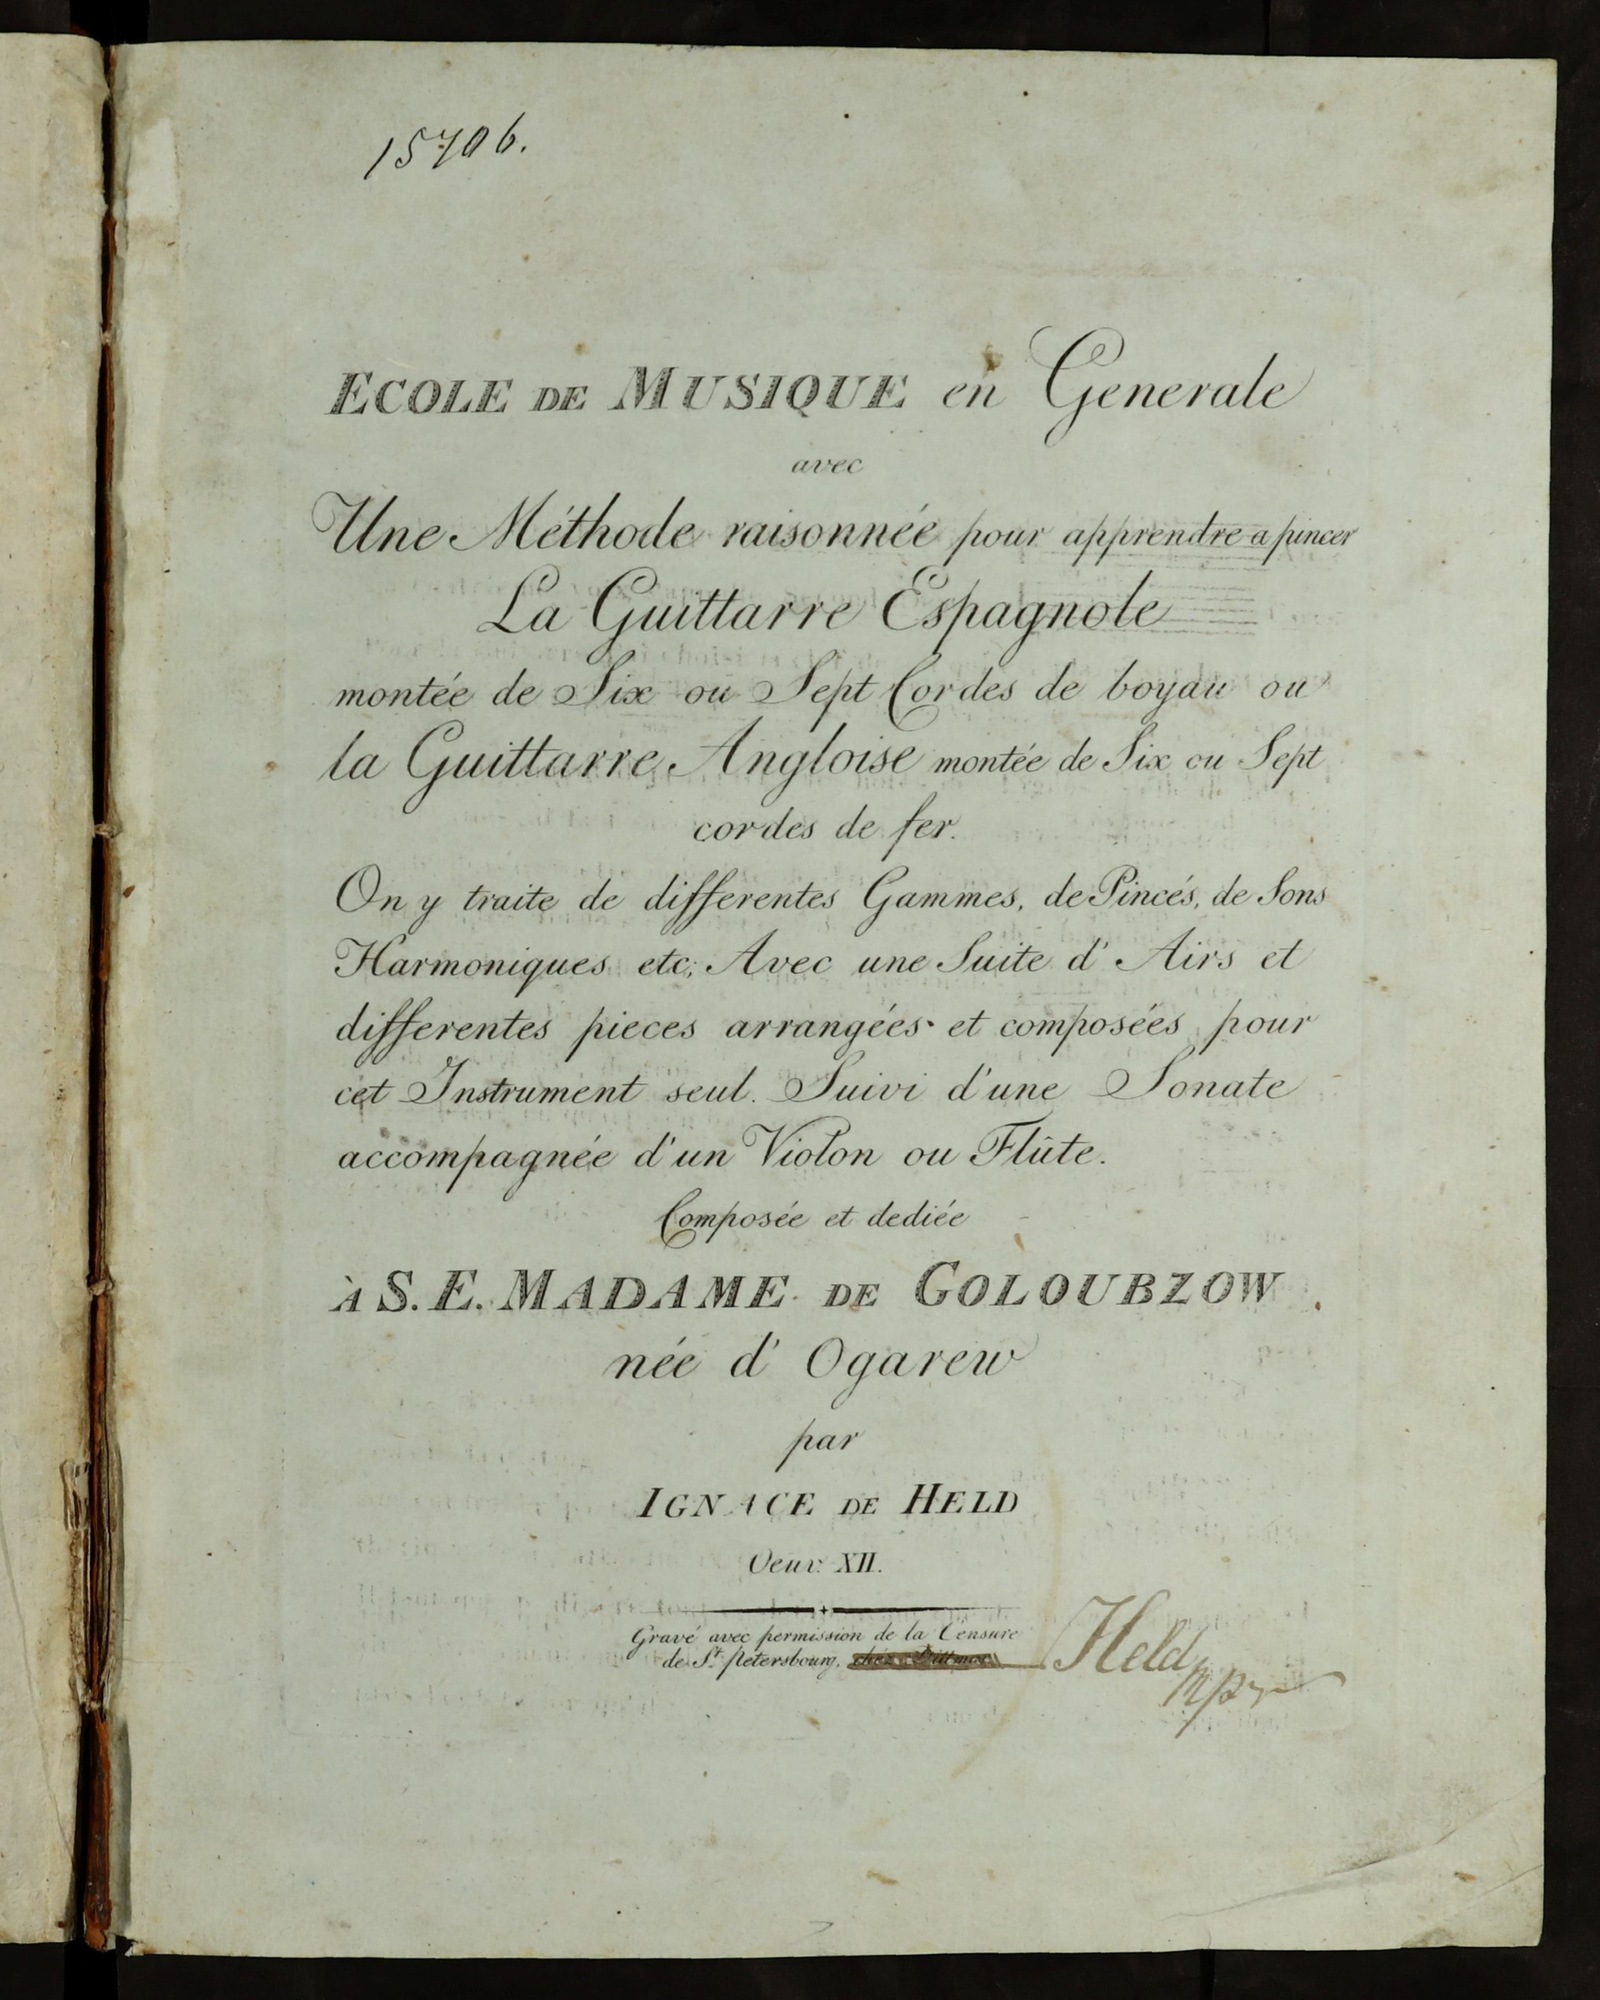 15706.
ECOLE DE MUSIQUE en Generale
avec
Une Méthode raisonnée pour apprendre a pincer
La Guittarre Espagnole
montée de Six ou Sept Cordes de boyau ou
la Guittarre Angloise montée de Six ou Sept
cordes de fer.
On y traite de differentes Gammes, de Pincés, de Sons
Harmoniques etc; Avec une Suite d' Airs et
differentes pieces arrangées et composées pour
cet Instrument seul. Suivi d'une Sonate
accompagnée d'un Violon ou Flûte.
Composée et dediée
À S. E. MADAME DE GOLOUBZOW
née d' Ogarew
par
IGNACE DE HELD
Oeuv: XII.
Gravé avec permission de la Censure
de St. Petersbourg, chéz Dittmar
Held